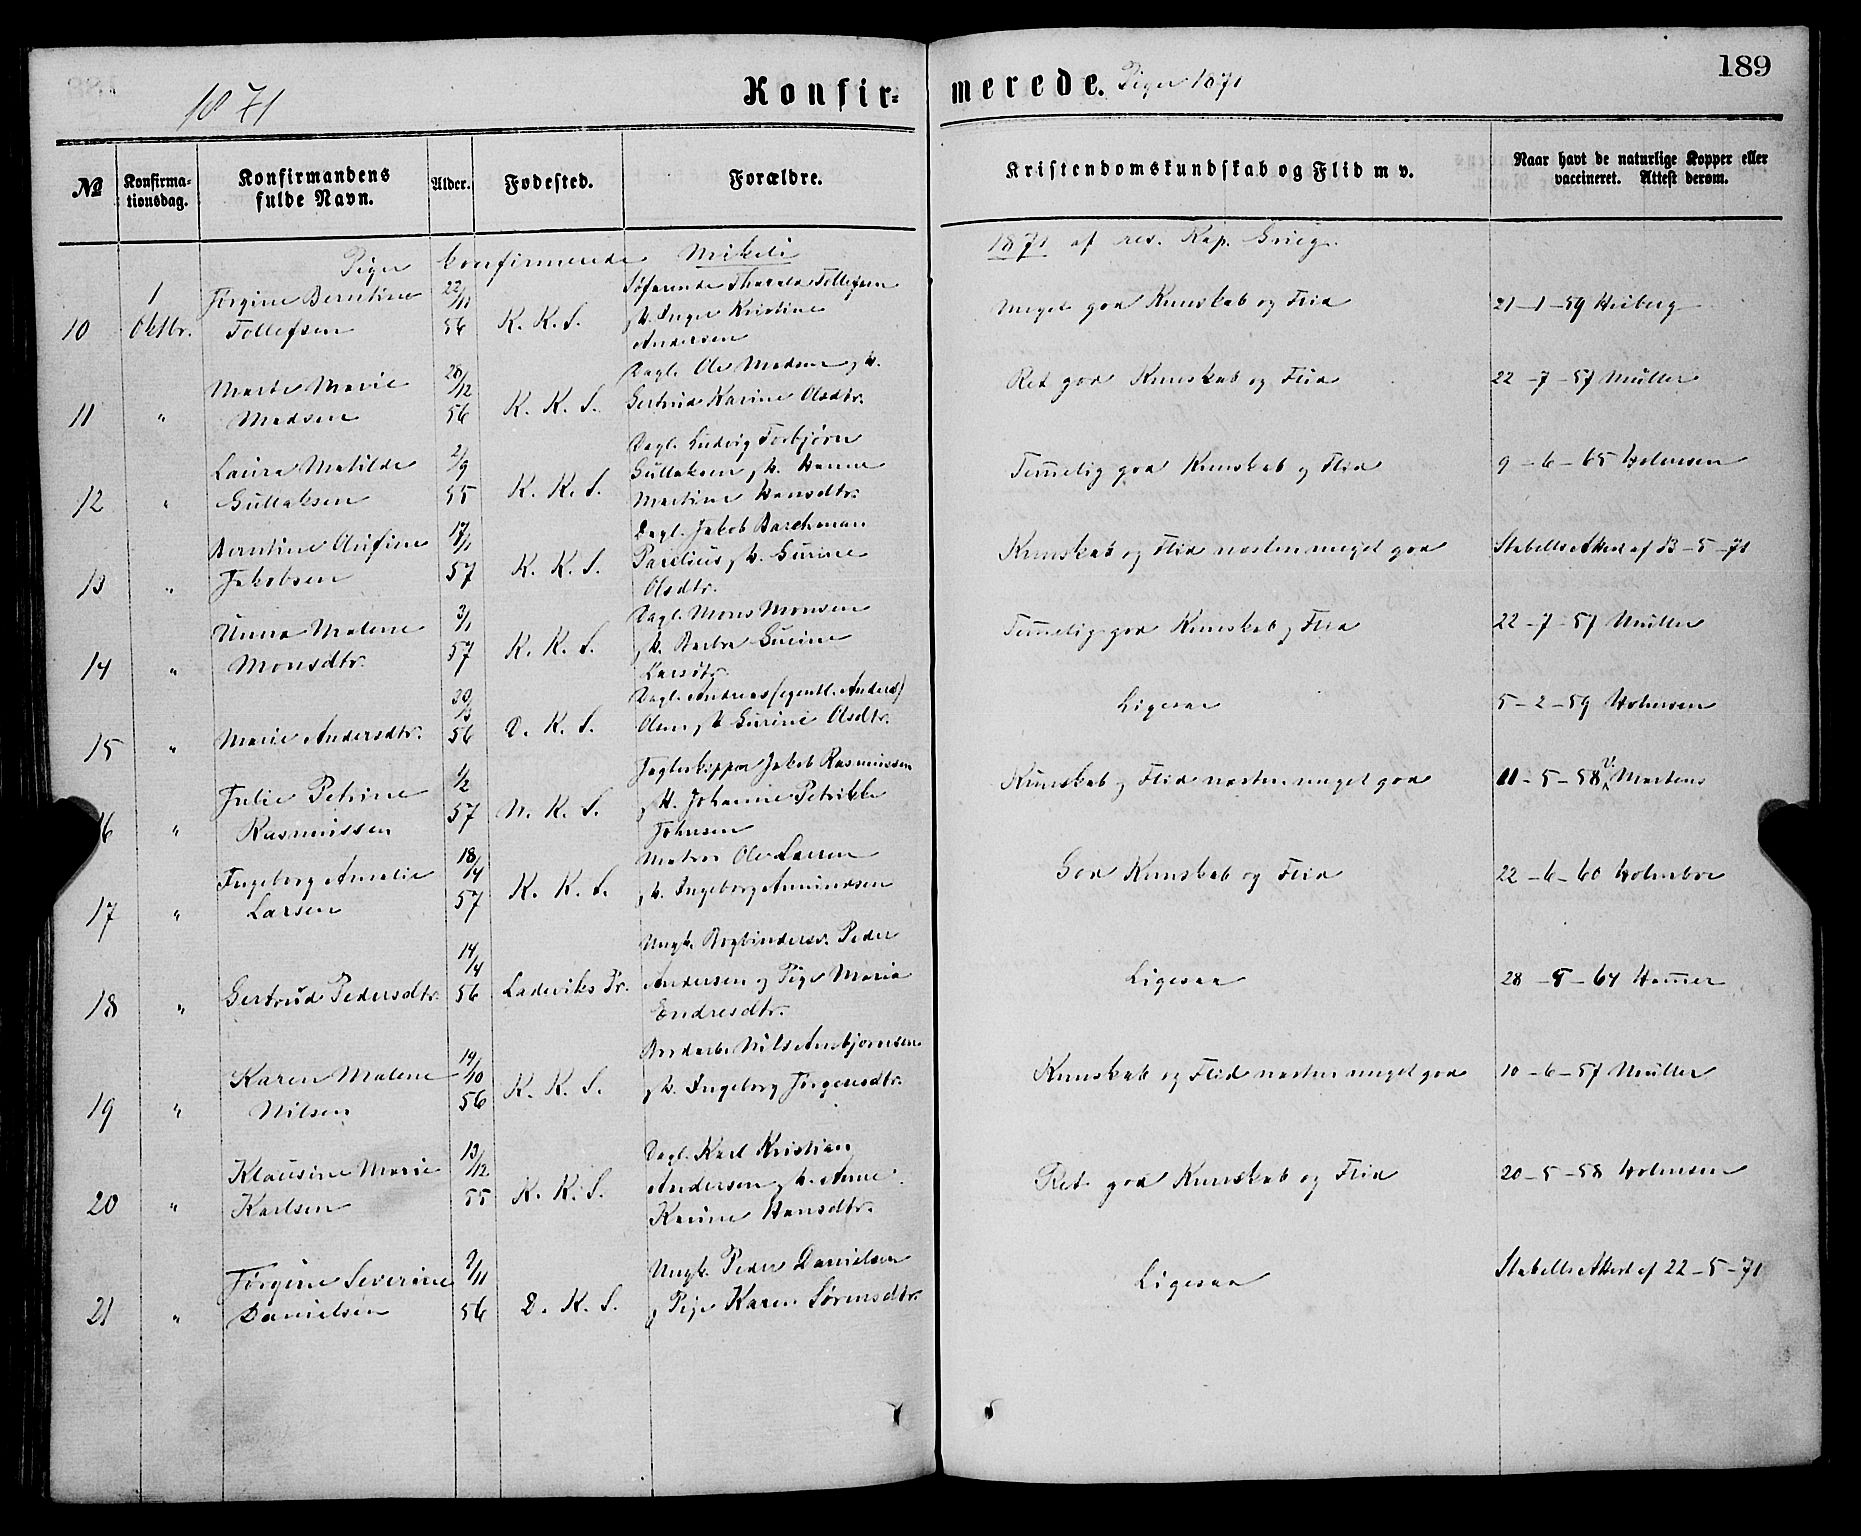 189
1871
Konfir-
merede. Piger 1871
№
Konfirma-
tionsdag.
Konfirmandens
fulde Navn.
Alder.
Fødested.
Forældre.
Kristendomskundskab og Flid m v.
Naar havt de naturlige Kopper eller
vaccineret. Attest derom.
Piger konfirmerede Mikeli 1871 af res. Kap. Grieg.
10 1 Oktbr. Jørgine Berntine Tollefsen 22/11 56 K. K. S. Søfarende Tharald Tollefsen
og H. Inger Kristine
Andersen
Meget god Kunskab og Flid 21-1-59 Heiberg
11 " Marte Marie Madsen 28/12 56 K. K. S. Dagl. Ole Madsen og H.
Gertrud Karine Olsdtr.
Ret god Kunskab og Flid 22-7-57 Müller
12 " Laura Matilde Gullaksen 2/9 55 K. K. S. Dagl. Ludvig Torbjørn
Gullaksen og H. Hanne
Martine Hansdtr.
Temelig god Kunskab og Flid 9-6-65 Holmsen
13 " Berntine Jakobsen 17/1 57 K. K. S. Dagl. Jakob
Parelius og H. Gurine
Olsdtr.
Kunskab og Flid næsten meget god Stabells Attest af 13-5-71
14 " Anna Malene Monsdtr. 3/1 57 K. K. S. Dagl. Mons Monsen
og H. Barbra Gurine
Larsdtr.
Temelig god Kunskab og Flid 22-7-57 Müller
15 " Marie Andersdtr. 56 D. K. S. Dagl. Andreas (egentl. Anders)
Olsen og H. Gurine Olsdtr.
Ligesaa 5-2-59 Holmsen
16 " Julie Petrine Rasmussen 1/2 57 N. K. S. Jagteskipper Jakob Rasmussen
og H. Johanne Petrikke
Johnsen
Kunskab og Flid næsten meget god 11-5-58 Martens
17 " Ingeborg Amalie Larsen 18/4 57 K. K. S. Matros Ole Larsen
og H. Ingeborg Amundsen
God Kunskab og Flid 22-6-60 Holmboe
18 " Gertrud Pedersdtr. 14/4 56 Ladeviks Pr. Ungk. Bogbindersv. Peder
Andersen og Pige Maria
Endresdtr.
Ligesaa 28-5-64 Hamer
19 " Karen Malene Nilsen 19/10 56 K. K. S. Nils Ambjørnsen
og H. Ingeborg Jørgensdtr.
Kunskab og Flid næsten meget god 10-6-57 Müller
20 " Klausine Marie Karlsen 13/12 55 K. K. S. Dagl. Karl Kristian
Andersen og H. Anne
Karine Hansdtr.
Ret god Kunskab og Flid 20-5-58 Holmsen
21 " Jørgine Severine Danielsen 2/11 56 D. K. S. Ungk. Peder Danielsen
og Pige Karen Sørensdtr.
Ligesaa Stabells Attest af 22-5-71